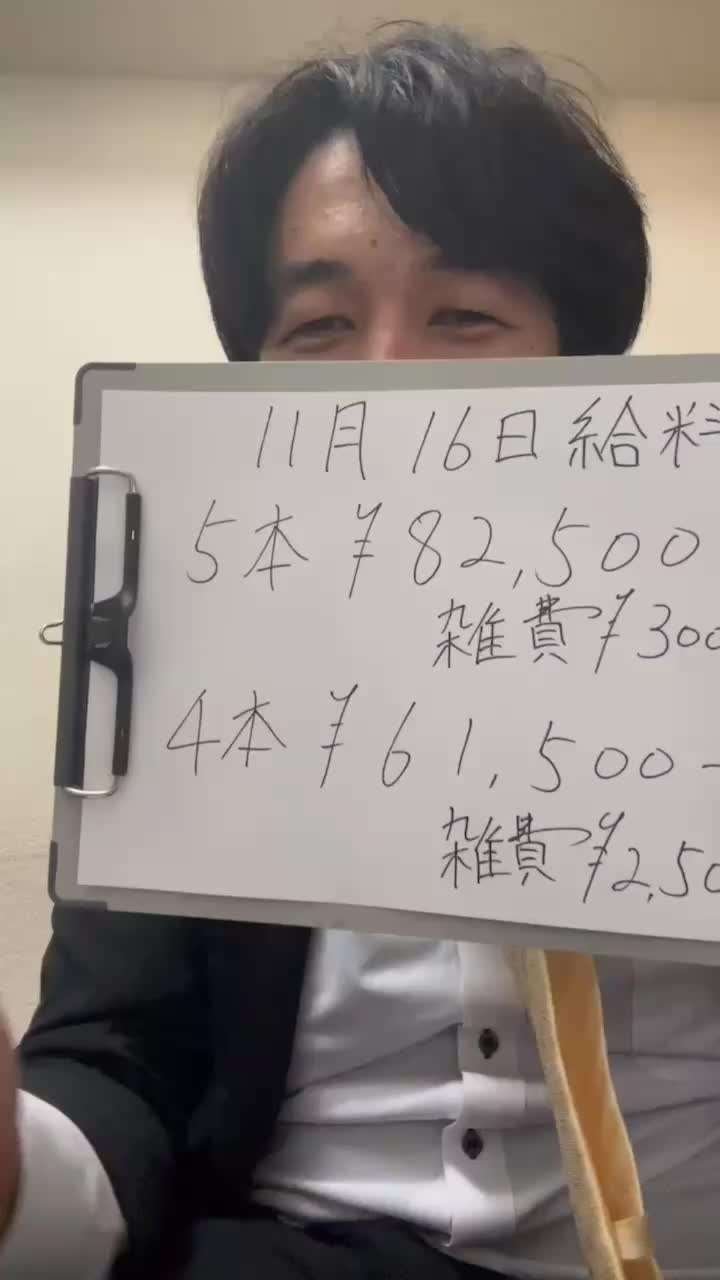 11月16日給料
5本 ¥82,500
雑費 ¥300
4本 ¥61,500-
雑費 ¥2,50